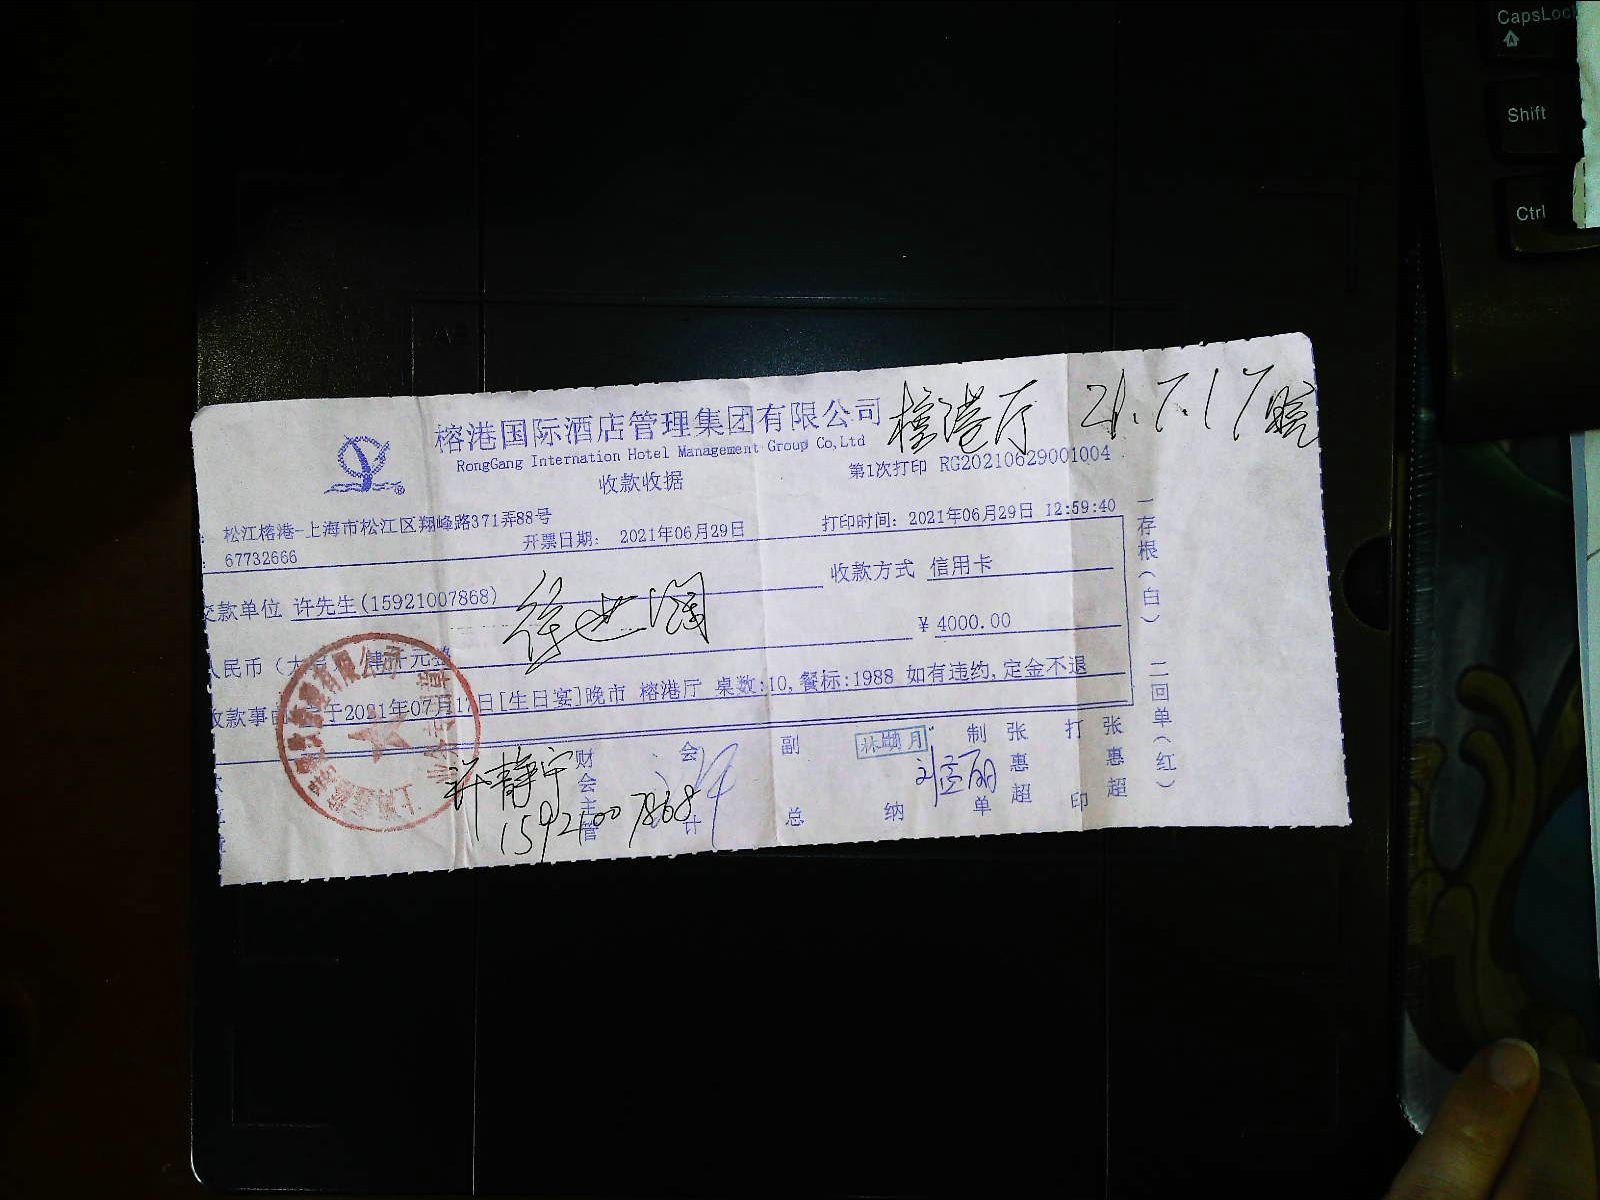 CapsLoc
Shift
Ctrl
榕港国际酒店管理集团有限公司
榕港厅 21.7.17晚
RongGang Internation Hotel Management Group Co,Ltd
第1次打印 RG20210629001004
收款收据
松江榕港-上海市松江区翔峰路371弄88号
67732666
开票日期: 2021年06月29日
打印时间: 2021年06月29日 12:59:40
款单位 许先生(15921007868)
收款方式 信用卡
人民币(大 肆仟元整
¥ 4000.00
收款事由 于2021年07月17日[生日宴]晚市 榕港厅 桌数:10,餐标:1988 如有违约,定金不退
一存根(白) 二回单(红)
财会主管
会计
副总
纳
制单
张惠超
打印
张惠超
许静宇
15921007868